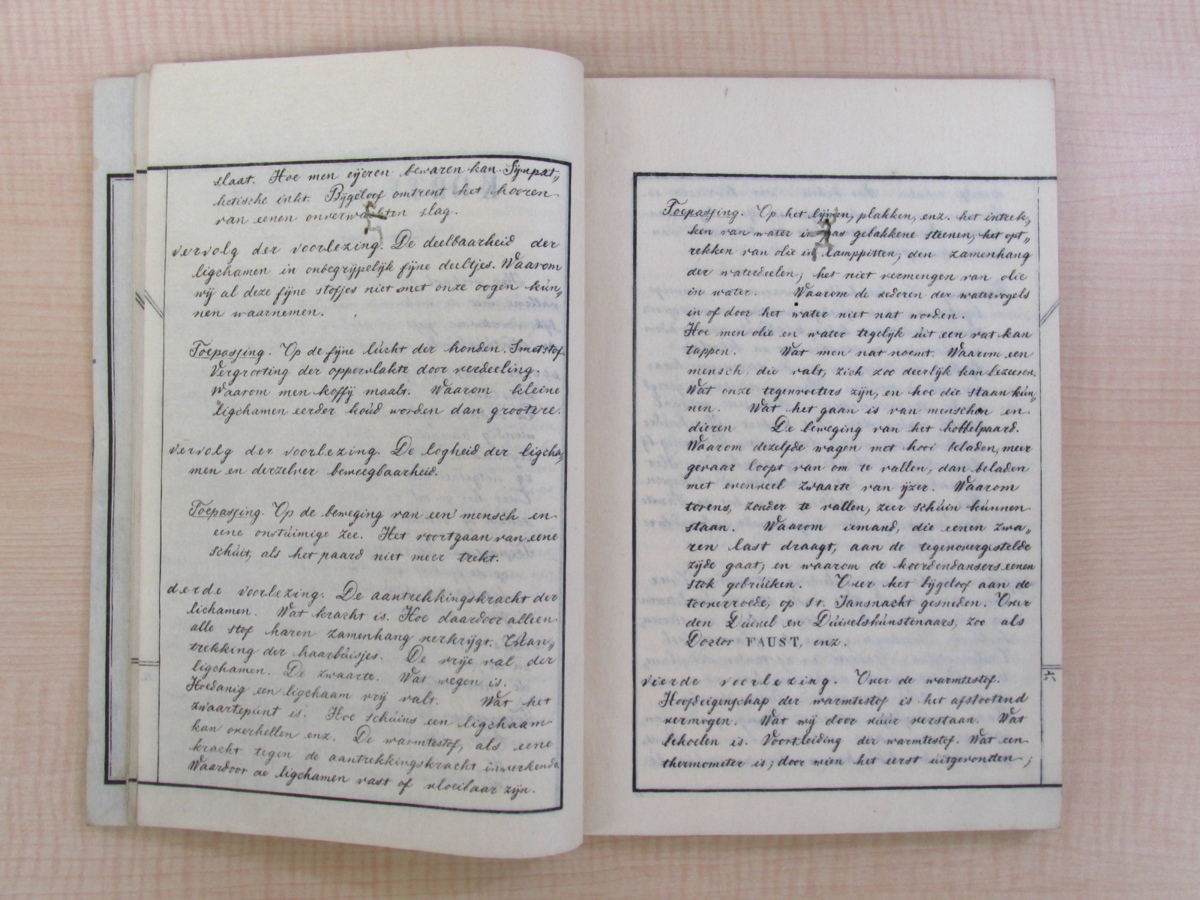 slaat. Hoe men eijeren bewaren kan. Sijnpat„
hetische inkt. Bijgeloof omtrent het hooren
van eenen onverwachten slag.
vervolg der voorlezing. De deelbaarheid der
ligchamen in onbegrijpelijk fijne deeltjes. Waarom
wij al deze fijne stofjes niet met onze oogen kùn„
nen waarnemen.
Toepassing. Op de fijne lùcht der honden. Smetstof.
Vergrooting der oppervlakte door verdeeling.
Waarom men koffij maalt. Waarom kleine
ligchamen eerder koùd worden dan grootere.
vervolg der voorlezing. De logheid der ligcha„
men en derzelver beweegbaarheid.
Toepassing. Op de beweging van een mensch en
eene onstùimige zee. Het voortgaan van eene
schùit, als het paard niet meer trekt.
derde voorlezing. De aantrekkingskracht der
lichamen. Wat kracht is. Hoe daardoor alleen
alle stof haren zamenhang verkrijgt. Aan„
trekking der haarbùisjes. De vrije val der
ligchamen. De zwaarte. Wat wegen is.
Hoedanig een ligchaam vrij valt. Wat het
zwaartepùnt is. Hoe schùins een ligchaam
kan overhellen enz. De warmtestof, als eene
kracht tegen de aantrekkingskracht inwerkende.
Waardoor de ligchamen vast of vloeibaar zijn.
Toepassing. Op het lijmen, plakken, enz. het intrek„
ken van water in gebakkene steenen, het opt„
rekken van olie in lamppitten; den zamenhang
der waterdeelen; het niet vermengen van olie
in water. Waarom de vederen der watervogels
in of door het water niet nat worden.
Hoe men olie en water tegelijk ùit een vat kan
tappen. Wat men nat noemt. Waarom een
mensch, die valt, zich zoo deerlijk kan bezeeren.
Wat onze tegenvoeters zijn, en hoe die staan kùn„
nen. Wat het gaan is van menschen en
dieren De beweging van het hobbelpaard.
Waarom dezelfde wagen met hooi beladen, meer
gevaar loopt van om te vallen, dan beladen
met evenveel zwaarte van ijzer. Waarom
torens, zonder te vallen, zeer schùin kùnnen
staan. Waarom iemand, die eenen zwa„
ren last draagt, aan de tegenovergestelde
zijde gaat; en waarom de koordendansers eenen
stok gebrùiken. Over het bijgeloof aan de
tooverroede, op St. Jansnacht gesneden. Over
den Dùivel en Dùivelskùnstenaars, zoo als
Doctor FAUST, enz.
vierde voorlezing. Over de warmtestof.
Hoofdeigenschap der warmtestof is het afstootend
vermogen. Wat wij door vùùr verstaan. Wat
bekoelen is. Voortleiding der warmtestof. Wat een
thermometer is; door wien het eerst ùitgevonden;
六